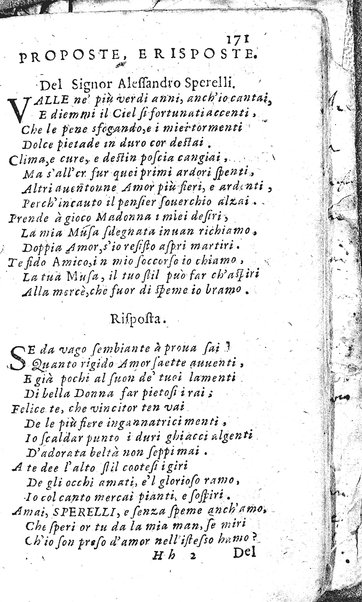 171
PROPOSTE, E RISPOSTE.
Del Signor Alessandro Sperelli.
VALLE ne' più verdi anni, anch'io cantai,
E diemmi il Ciel sì fortunati accenti,
Che le pene sfogando, e i miei tormenti
Dolce pietade in duro cor destai.
Clima, e cure, e destin poscia cangiai,
Ma s'all'cr fur quei primi ardori spenti,
Altri auentonne Amor più fieri, e ardenti,
Perch'incauto il pensier souerchio alzai.
Prende à gioco Madonna i miei desiri,
La mia Musa sdegnata inuan richiamo,
Doppia Amor, s'io resisto aspri martiri.
Te fido Amico, in mio soccorso io chiamo,
La tua Musa, il tuo stil può far ch'aspiri
Alla mercè, che fuor di speme io bramo.
Risposta.
SE da vago sembiante à proua sai?
Quanto rigido Amor saette auuenti,
E già pochi al suon de' tuoi lamenti
Di bella Donna far pietosi i rai;
Felice te, che vincitor ten vai
De le più fiere ingannatrici menti,
Io scaldar punto i duri ghiacci algenti
D'adorata beltà non seppi mai.
A te dee l'alto stil cotesi giri
De gli occhi amati, e'l glorioso ramo,
Io col canto mercai pianti, e sospiri.
Amai, SPERELLI, e senza speme anch'amo.
Che speri or tu da la mia man, se miri
Ch'io son preso d'amor nell'istesso hamo?
Hh 2 Del